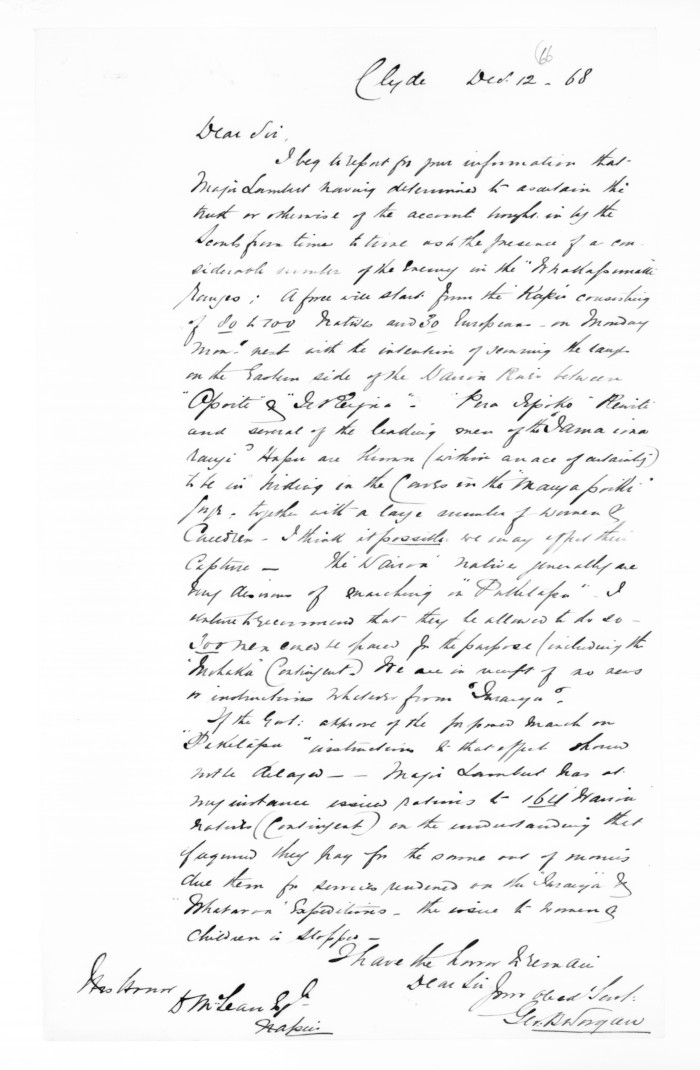 66
Clyde Dec. 12 - 68
Dear Sir,
I beg to report for your information that
Major Lambert having determined to ascertain the
truth or otherwise of the account brought in by the
Scouts from time to time as to the presence of a con-
siderable number of the Enemy in the "
Ranges; A force will start from the Kapu consisting
of 80 to 100 Natives and 30 Europeans - on Monday
Morng. next with the intention of scouring the
on the Eastern side of the Wairoa River between
"Opoiti" & " - "Pera Tipoko"
and several of the leading men of the
Hapu are known (within an ace of certainty)
to be in hiding in the Caves in the
Gorge, together with a large number of women &
Children - I think it possible we may effect their
Capture - The Wairoa natives generally are
very desirous of marching on "Puketapu". I
venture to recommend that they be allowed to do so -
300 men could be spared for the purpose (including the
"Mohaka" Contingent) We are in receipt of no news
or instructions whatever from "Turanga".
If the Govt: approve of the proposed march on
"Puketapu" instructions to that effect should
not be delayed - - Major Lambert has at
my instance issued rations to 164 Wairoa
Natives (Contingent) on the understanding that
if required they pay for the same out of monies
due them for services rendered on the "Turanga" &
"Whataroa" Expeditions - the issue to women &
children is stopped -
I have the honor to remain
Dear Sir Your Obed. Servt.
His Honor
D McLean Esq
Napier
Geo. B Worgan